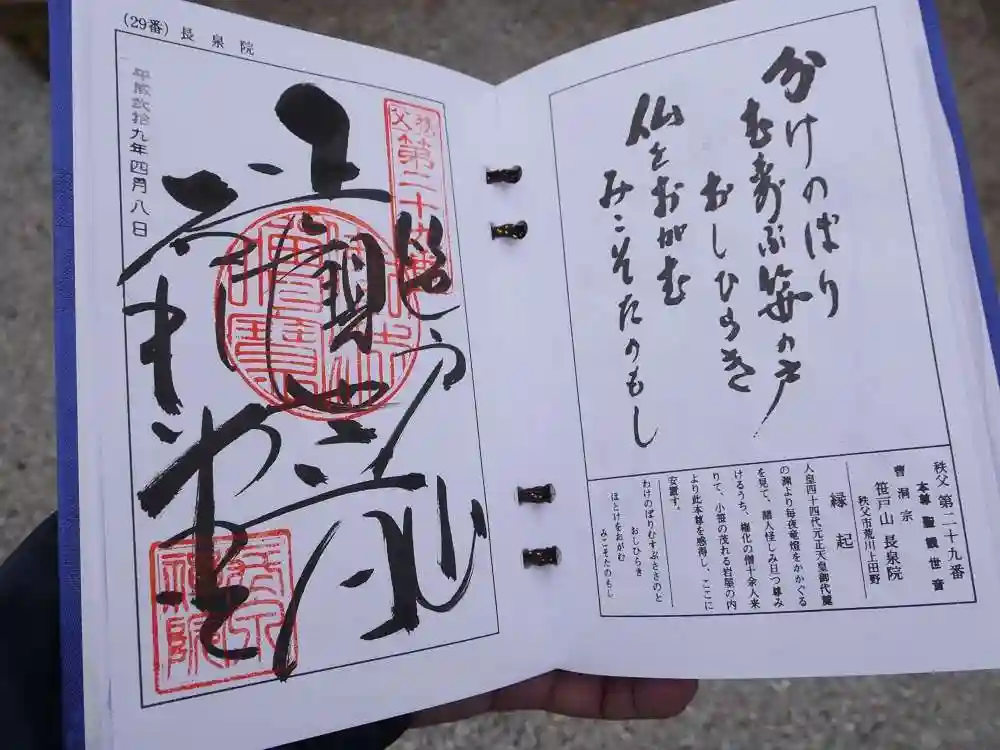 (29番) 長泉院
平成弐拾九年四月八日
秩父第二十九番
観世音
分けのぼり
むすぶ笹の戸
おしひらき
仏をおがむ
みこそたのもし
秩父 第二十九番
本尊 聖観世音
曹洞宗
笹戸山 長泉院
秩父市荒川上田野
縁起
人皇四十四代元正天皇御代厳
の淵より毎夜竜燈をかかぐる
を見て、諸人怪しみ且つ尊み
けるうち、権化の僧十余人来
りて、小笹の茂れる岩窟の内
より此本尊を感得し、ここに
安置す。
わけのぼりむすぶささのと
おしひらき
ほとけをおがむ
みこそたのもし